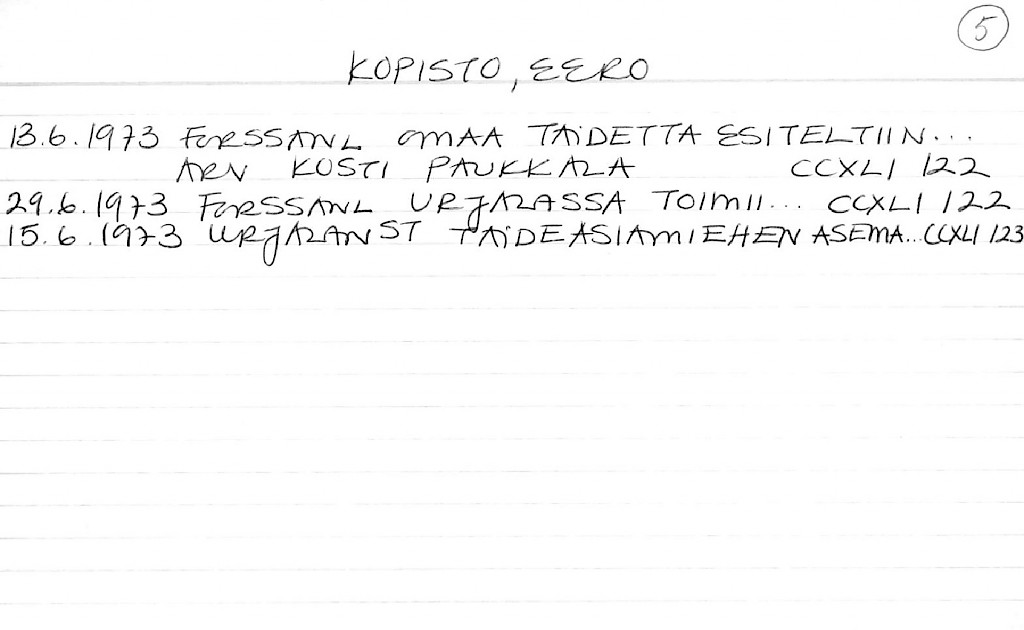 5
KOPISTO, EERO
13.6.1973 FORSSANL OMAA TAIDETTA ESITELTIIN...
ARV KOSTI PAUKKALA CCXLI 122
29.6.1973 FORSSANL URJALASSA TOIMII... CCXLI 122
15.6.1973 URJALANST TAIDEASIAMIEHEN ASEMA... CCXLI 123